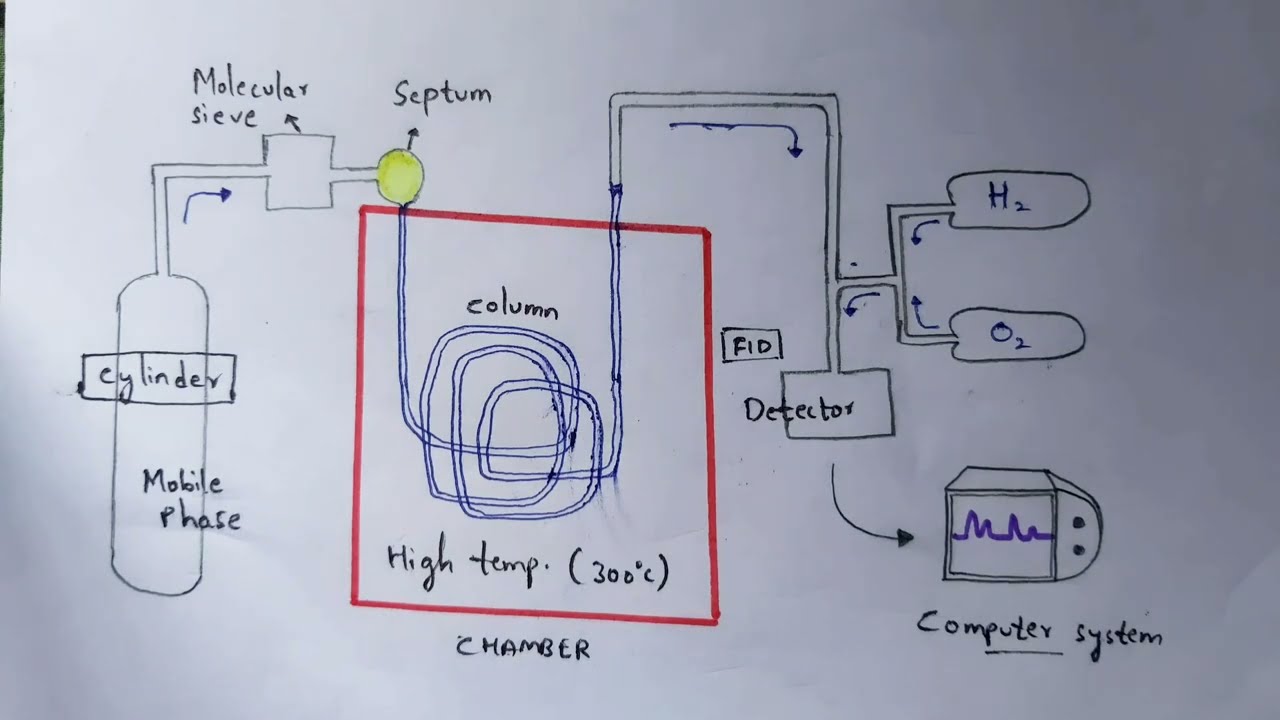 Molecular
sieve
Septum
H₂
column
O₂
FID
cylinder
Detector
Mobile
Phase
High temp. (300°c)
CHAMBER
Computer system